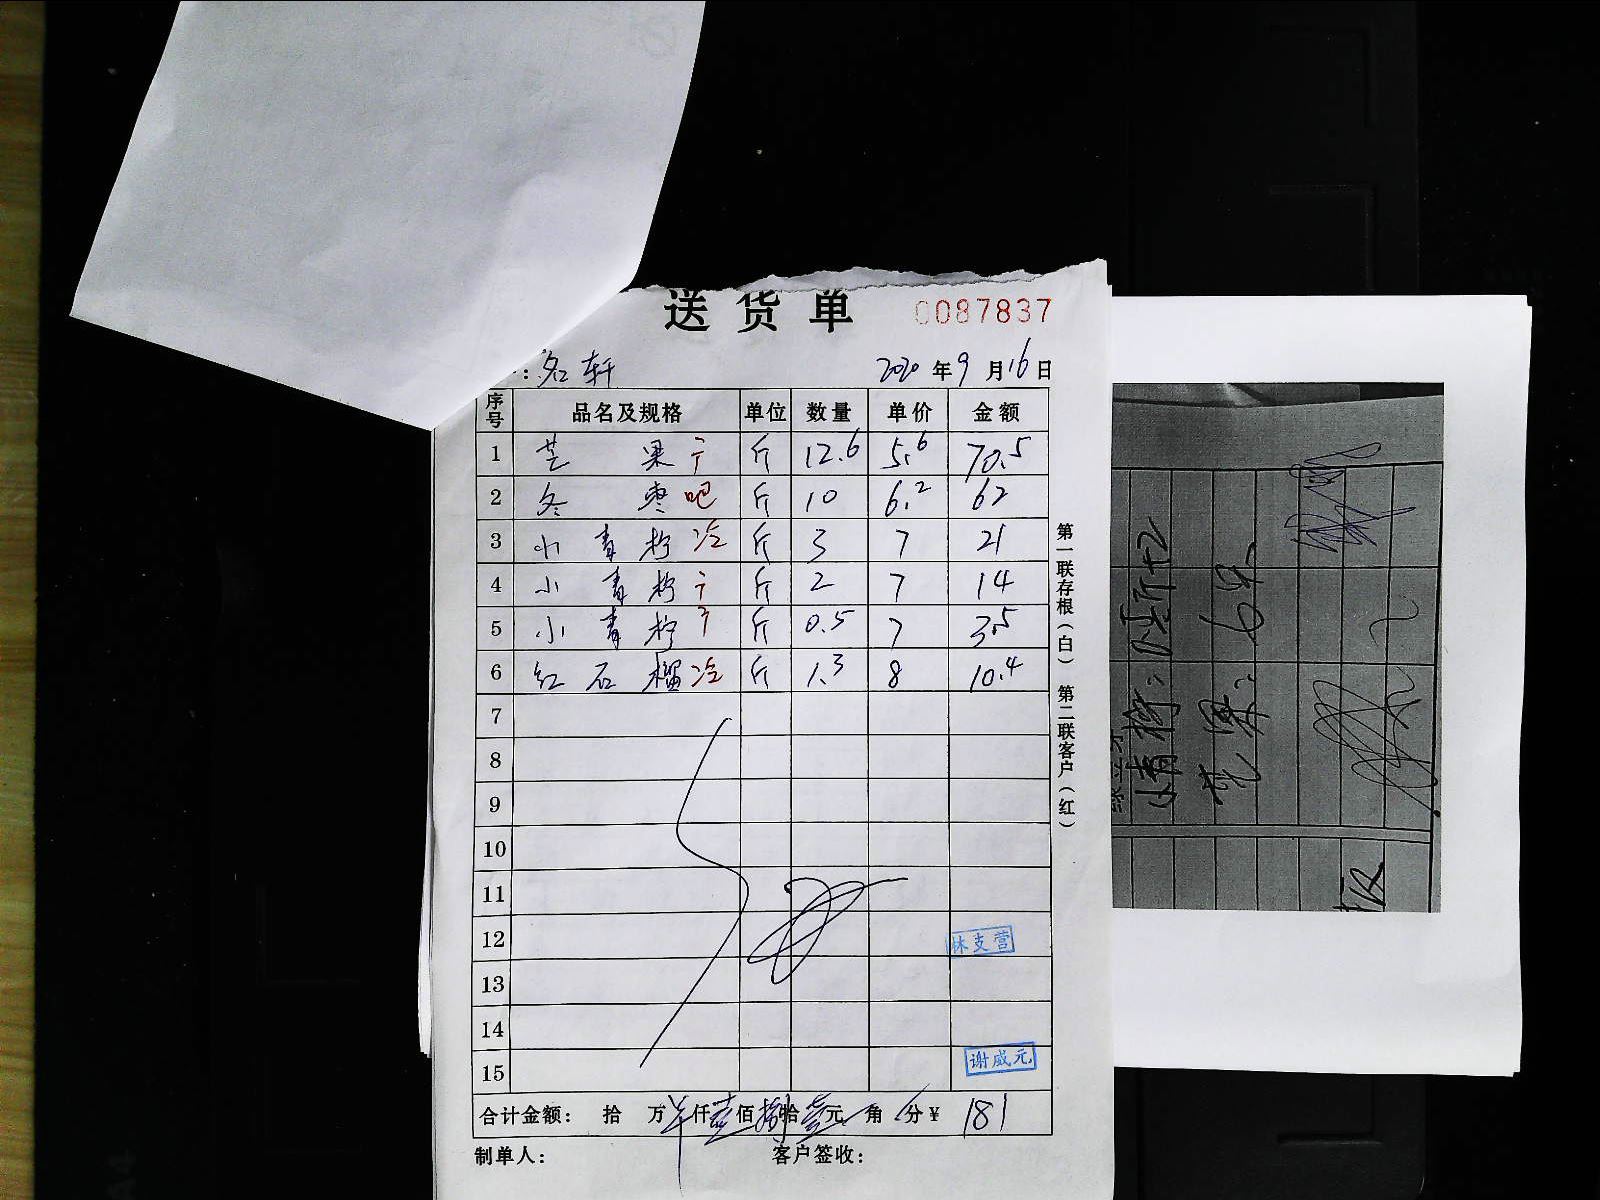 送货单 0087837
: 名轩 2020年9月16日
序号 品名及规格 单位 数量 单价 金额
1 芒果 斤 12.6 5.6 70.5
2 冬枣 吧 斤 10 6.2 62
3 小青柠 冷 斤 3 7 21
4 小青柠 斤 2 7 14
5 小青柠 斤 0.5 7 3.5
6 红石榴 冷 斤 1.3 8 10.4
7
8
9
10
11
12 林支营
13
14
15 谢威元
合计金额: 拾 万 仟壹佰捌拾壹元 角 分¥ 181
制单人: 客户签收:
第一联存根(白) 第二联客户(红)